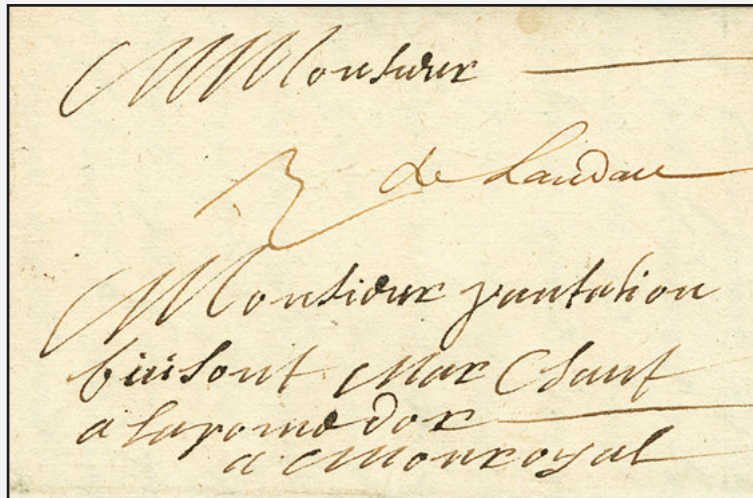 Monsieur
3 de Landau
Monsieur pantalion
buisont Marchant
a la pome dor
a Monroyal